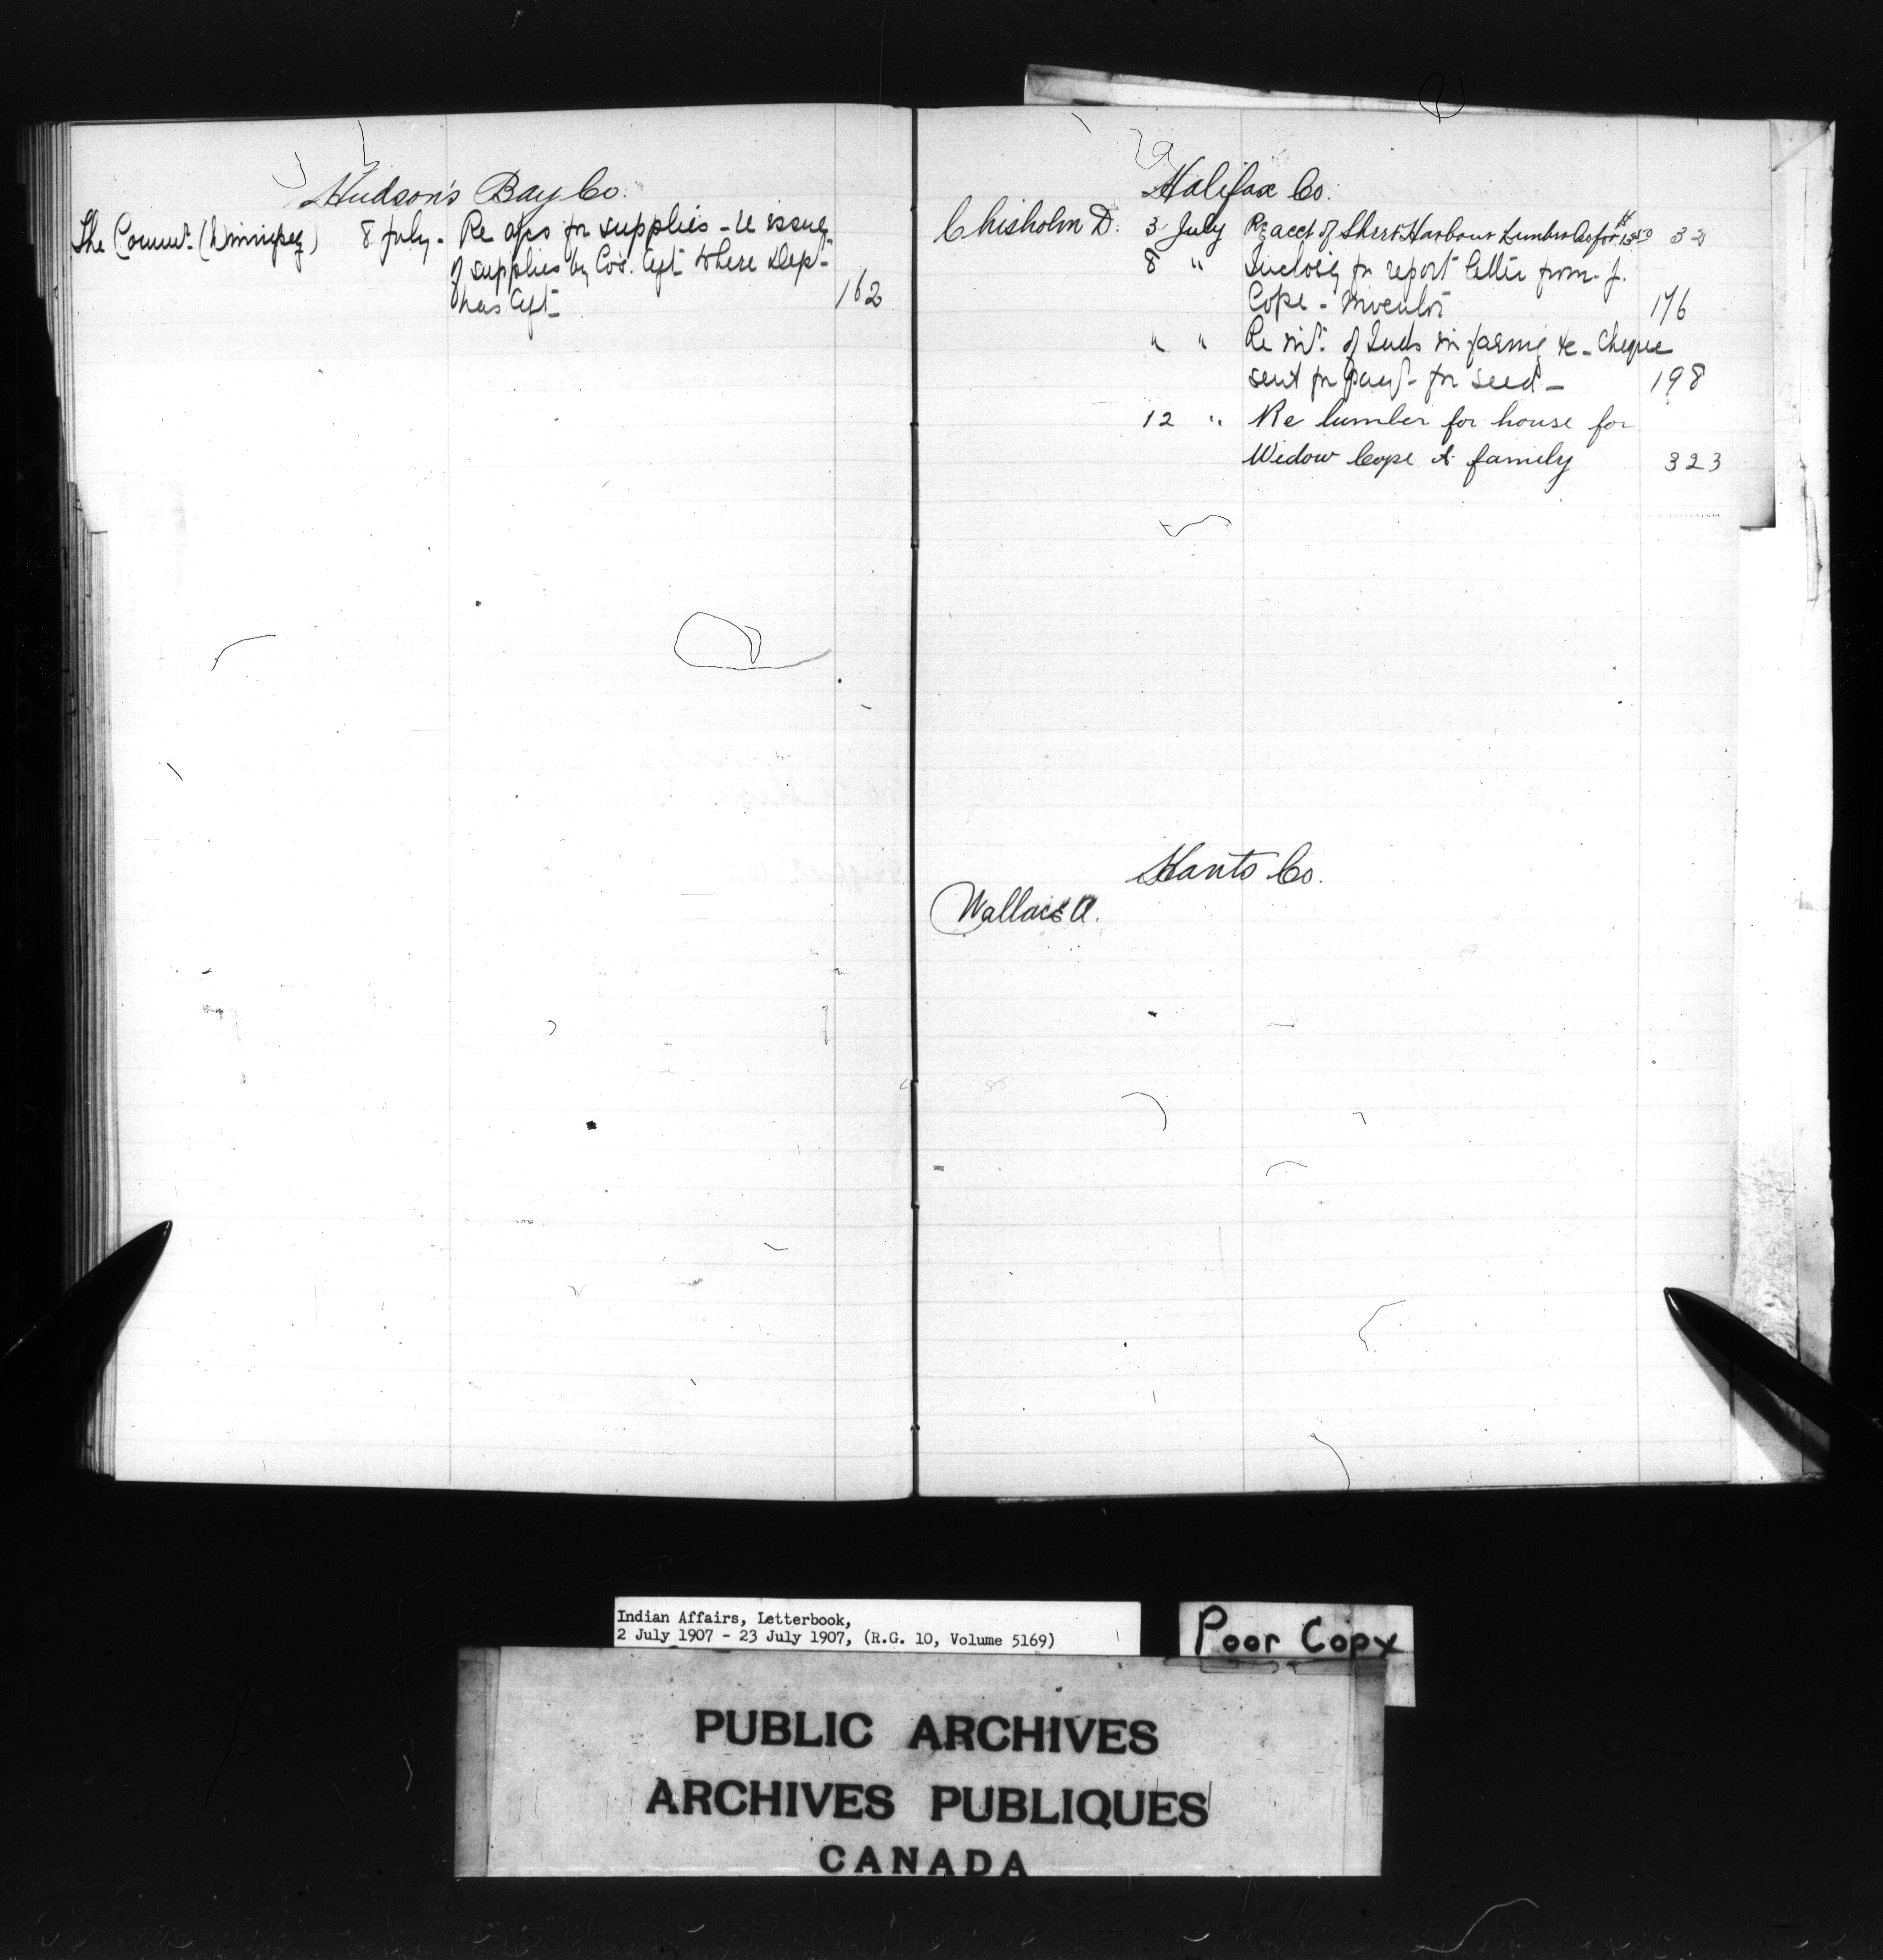 Hudson's Bay Co.
The Commr. (Winnipeg) 8 July - Re a/cs for supplies - re issue
of supplies by Co's. Agt where Dept
has Agt 162
Halifax Co.
Chisholm D. 3 July Re acct of Sheet Harbour Lumber Co for $13.50 32
8 " Inclosig for report letter from J.
Cope - 176
" " Re of Inds in farmig &c - Cheque
sent for payt for seed - 198
12 " Re lumber for house for
Widow Cope & family 323
Hants Co.
Wallace A.
Indian Affairs, Letterbook,
2 July 1907 - 23 July 1907, (R.G. 10, Volume 5169)
Poor Copy
PUBLIC ARCHIVES
ARCHIVES PUBLIQUES
CANADA